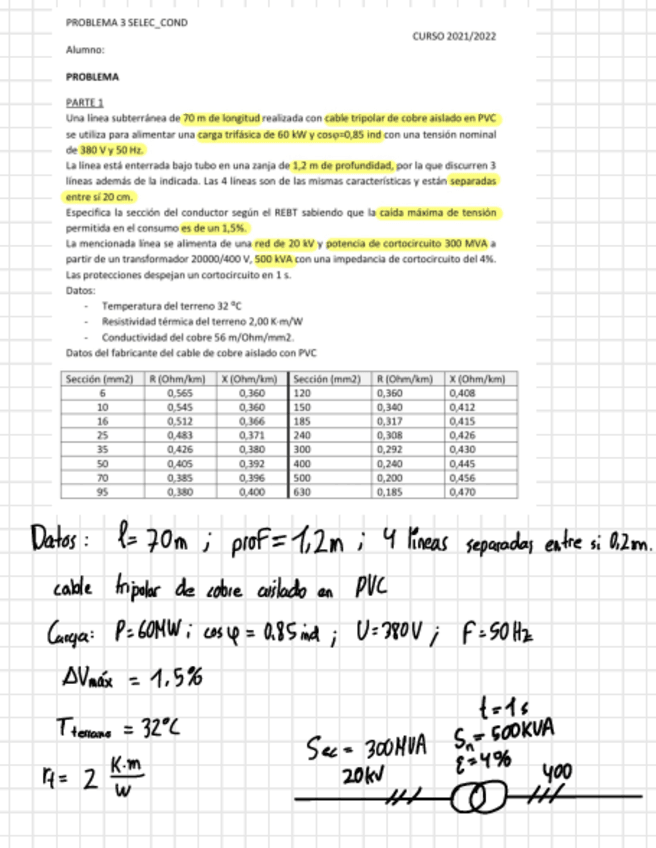 PROBLEMA 3 SELEC_COND
CURSO 2021/2022
Alumno:
PROBLEMA
PARTE 1
Una línea subterránea de 70 m de longitud realizada con cable tripolar de cobre aislado en PVC
se utiliza para alimentar una carga trifásica de 60 kW y cosφ=0,85 ind con una tensión nominal
de 380 V y 50 Hz.
La línea está enterrada bajo tubo en una zanja de 1,2 m de profundidad, por la que discurren 3
líneas además de la indicada. Las 4 líneas son de las mismas características y están separadas
entre sí 20 cm.
Especifica la sección del conductor según el REBT sabiendo que la caída máxima de tensión
permitida en el consumo es de un 1,5%.
La mencionada línea se alimenta de una red de 20 kV y potencia de cortocircuito 300 MVA a
partir de un transformador 20000/400 V, 500 kVA con una impedancia de cortocircuito del 4%.
Las protecciones despejan un cortocircuito en 1 s.
Datos:
- Temperatura del terreno 32 ºC
- Resistividad térmica del terreno 2,00 K·m/W
- Conductividad del cobre 56 m/Ohm/mm2.
Datos del fabricante del cable de cobre aislado con PVC
Sección (mm2) R (Ohm/km) X (Ohm/km) Sección (mm2) R (Ohm/km) X (Ohm/km)
6 0,565 0,360 120 0,360 0,408
10 0,545 0,360 150 0,340 0,412
16 0,512 0,366 185 0,317 0,415
25 0,483 0,371 240 0,308 0,426
35 0,426 0,380 300 0,292 0,430
50 0,405 0,392 400 0,240 0,445
70 0,385 0,396 500 0,200 0,456
95 0,380 0,400 630 0,185 0,470
Datos: l= 70m ; prof = 1,2m ; 4 líneas separadas entre si 0,2m.
cable tripolar de cobre aislado en PVC
Carga: P=60MW ; cos φ = 0.85 ind ; U=380V ; F=50Hz
ΔVmáx = 1,5%
Tterreno = 32°C
t=1s
Scc = 300MVA Sn=500KVA
ε=4%
rt= 2 K·m/W
20kV 400